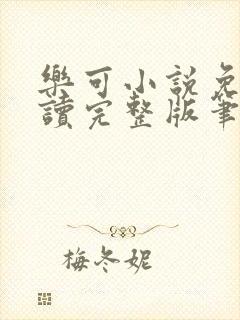 樂可小説免
讀完整版筆
梅冬妮